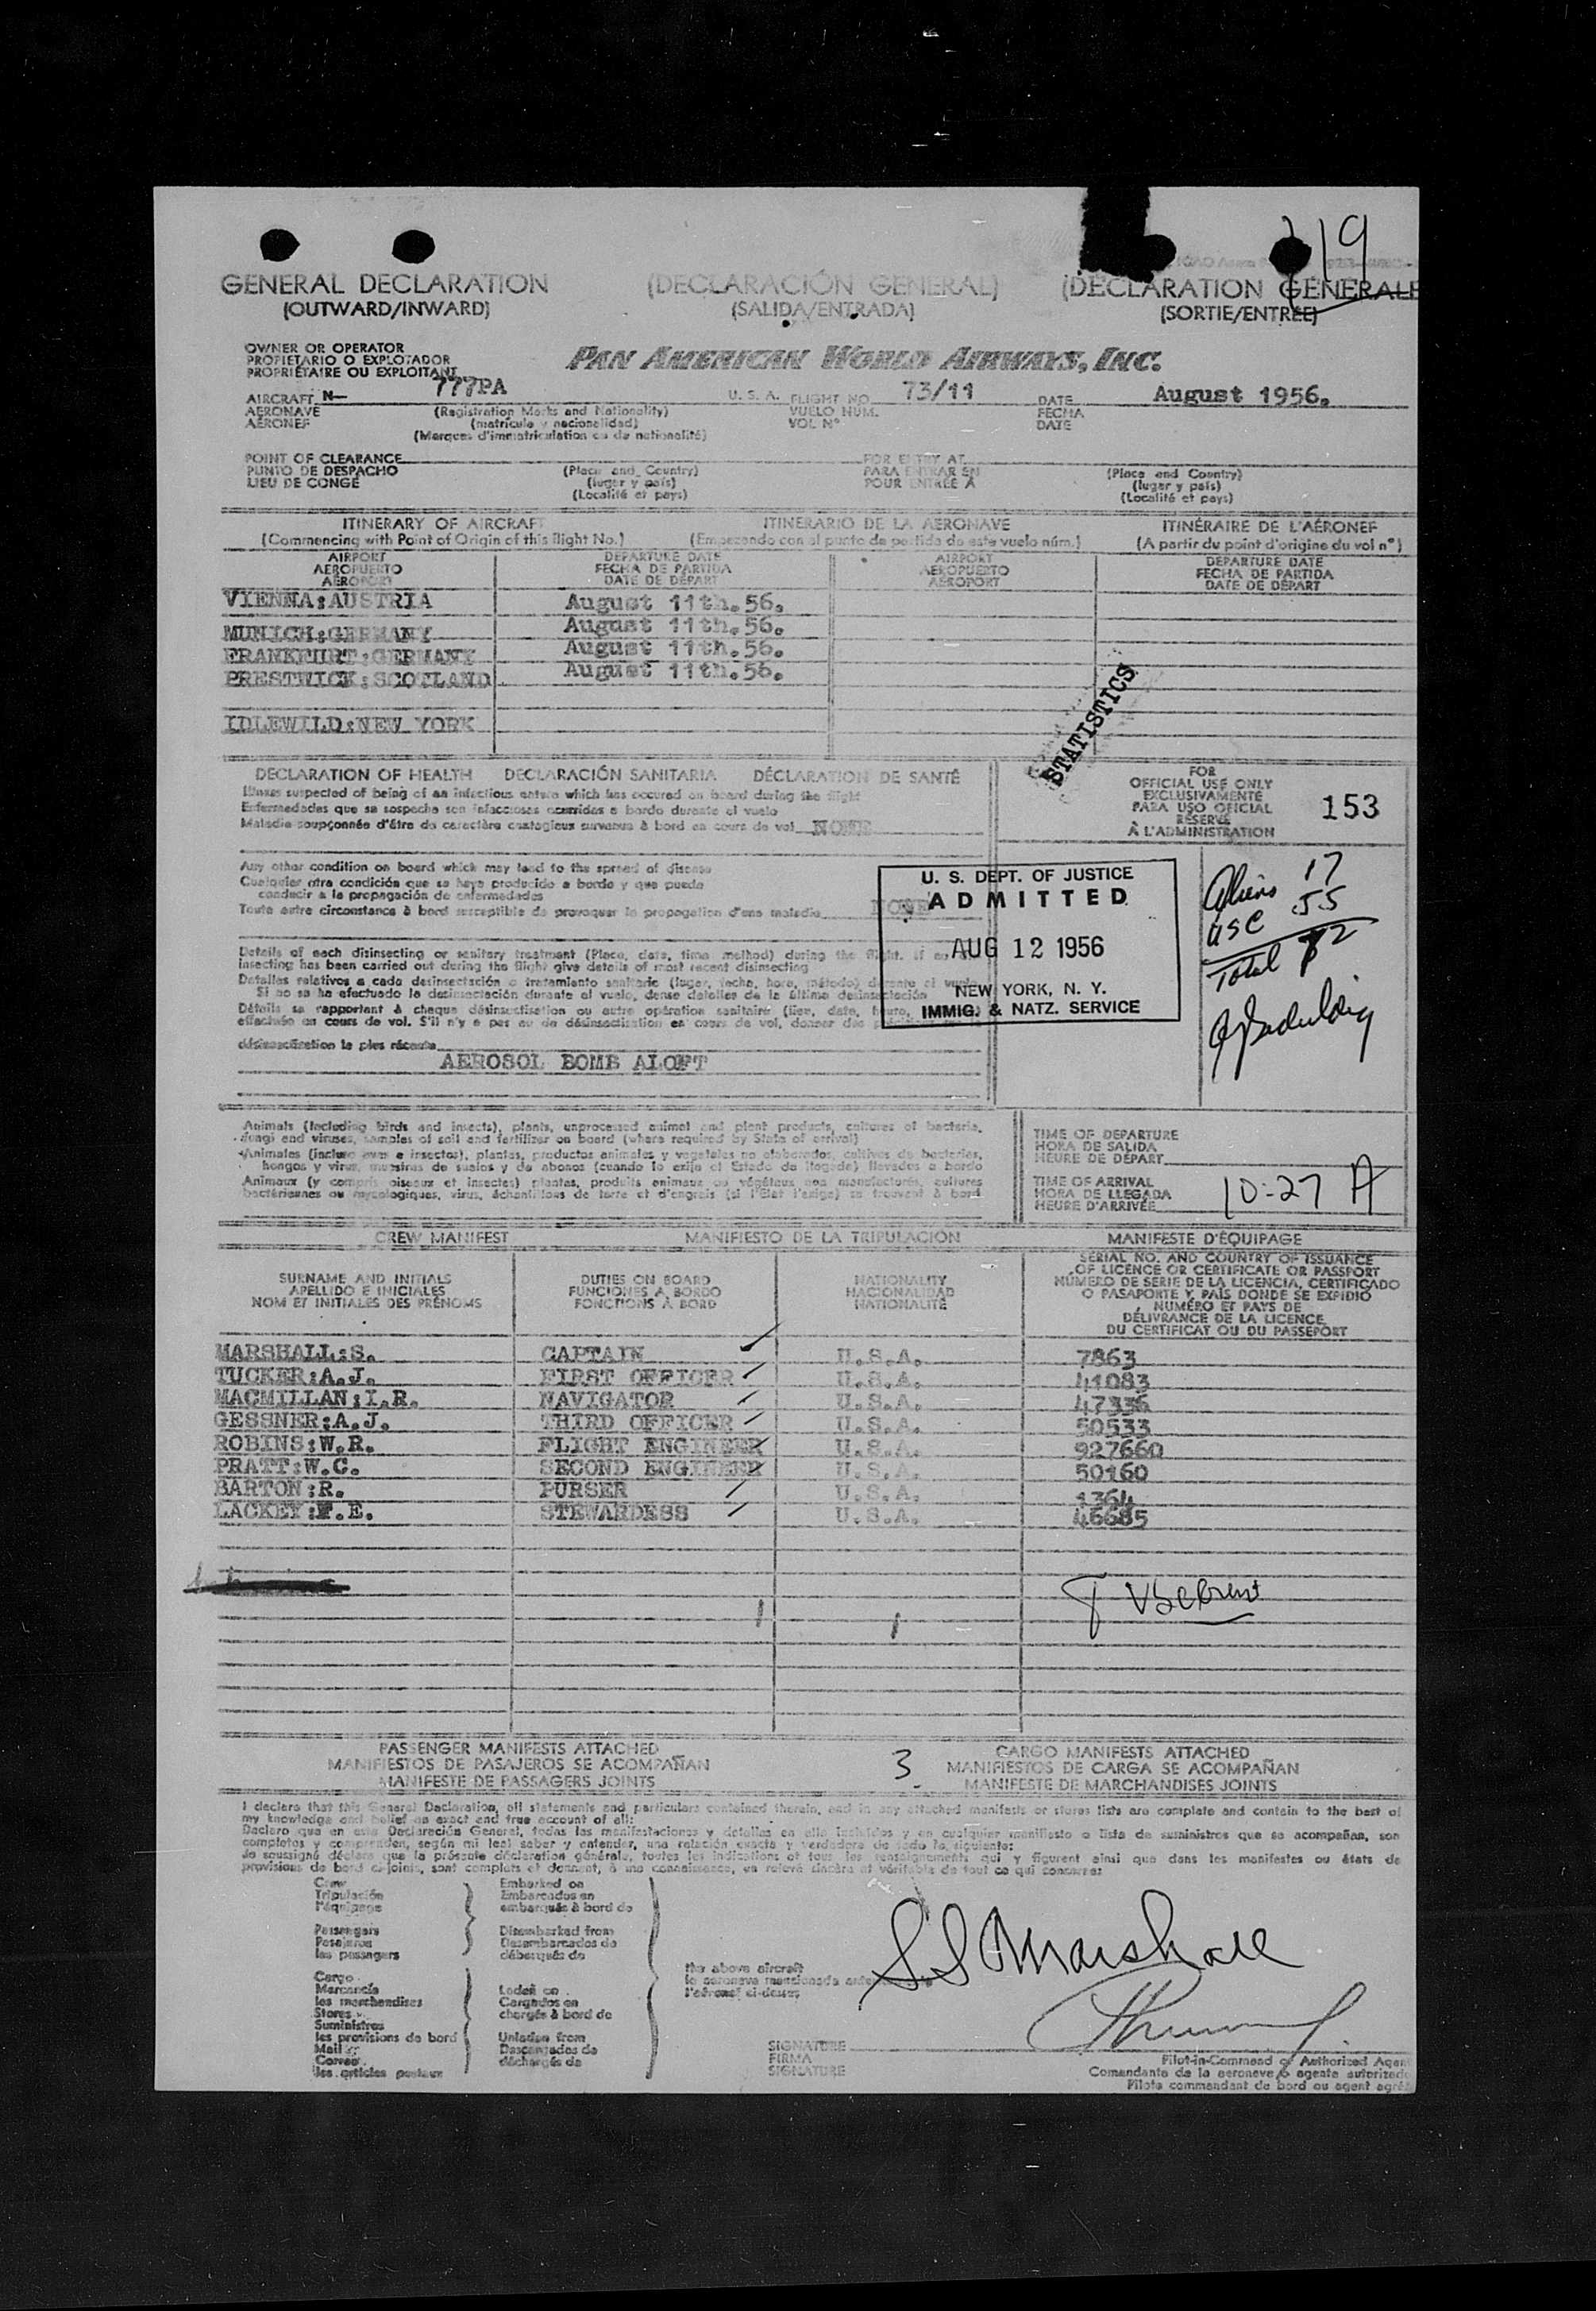 119
GENERAL DECLARATION (DECLARACIÓN GENERAL) (DÉCLARATION GÉNÉRALE
(OUTWARD/INWARD) (SALIDA/ENTRADA) (SORTIE/ENTRÉE)
OWNER OR OPERATOR
PROPIETARIO O EXPLOTADOR
PROPRIÉTAIRE OU EXPLOITANT
PAN AMERICAN WORLD AIRWAYS, INC.
AIRCRAFT N- 777PA U. S. A. FLIGHT NO. 73/11 DATE August 1956.
AERONAVE (Registration Marks and Nationality) VUELO NÚM. FECHA
AÉRONEF (matrícula y nacionalidad) VOL N° DATE
(Marques d'immatriculation ou de nationalité)
POINT OF CLEARANCE FOR ENTRY AT
PUNTO DE DESPACHO (Place and Country) PARA ENTRAR EN (Place and Country)
LIEU DE CONGÉ (lugar y país) POUR ENTRÉE À (lugar y país)
(Localité et pays) (Localité et pays)
ITINERARY OF AIRCRAFT ITINERARIO DE LA AERONAVE ITINÉRAIRE DE L'AÉRONEF
(Commencing with Point of Origin of this flight No.) (Empezando con el punto de partida de este vuelo núm.) (A partir du point d'origine du vol n°)
AIRPORT DEPARTURE DATE AIRPORT DEPARTURE DATE
AEROPUERTO FECHA DE PARTIDA AEROPUERTO FECHA DE PARTIDA
AÉROPORT DATE DE DÉPART AÉROPORT DATE DE DÉPART
VIENNA:AUSTRIA August 11th.56.
MUNICH:GERMANY August 11th.56.
FRANKFURT:GERMANY August 11th.56.
PRESTWICK:SCOTLAND August 11th.56.
IDLEWILD:NEW YORK
STATISTICS
DECLARATION OF HEALTH DECLARACIÓN SANITARIA DÉCLARATION DE SANTÉ
Illness suspected of being of an infectious nature which has occured on board during the flight
Enfermedades que se sospecha son infecciosas ocurridas a bordo durante el vuelo
Maladie soupçonnée d'être de caractère contagieux survenue à bord en cours de vol NONE
FOR
OFFICIAL USE ONLY
EXCLUSIVAMENTE
PARA USO OFICIAL
RÉSERVÉ
À L'ADMINISTRATION
153
Any other condition on board which may lead to the spread of disease
Cualquier otra condición que se haya producido a bordo y que pueda
conducir a la propagación de enfermedades
Toute autre circonstance à bord susceptible de provoquer la propagation d'une maladie NONE
U. S. DEPT. OF JUSTICE
ADMITTED
AUG 12 1956
NEW YORK, N. Y.
IMMIG. & NATZ. SERVICE
Aliens 17
USC 55
Total 72
Details of each disinsecting or sanitary treatment (Place, date, time, method) during the flight. If no
insecting has been carried out during the flight give details of most recent disinsecting
Detalles relativos a cada desinsectación o tratamiento sanitario (lugar, fecha, hora, método) durante el vuelo
Si no se ha efectuado la desinsectación durante el vuelo, dense detalles de la última desinsectación
Détails se rapportant à chaque désinsectisation ou autre opération sanitaire (lieu, date, heure,
effectuée en cours de vol. S'il n'y a pas eu de désinsectisation en cours de vol, donner des
désinsectisation la plus récente
AEROSOL BOMB ALOFT
Animals (including birds and insects), plants, unprocessed animal and plant products, cultures of bacteria,
fungi and viruses, samples of soil and fertilizer on board (where required by State of arrival)
Animales (incluso aves e insectos), plantas, productos animales y vegetales no elaborados, cultivos de bacterias,
hongos y virus, muestras de suelos y de abonos (cuando lo exija el Estado de llegada) llevados a bordo
Animaux (y compris oiseaux et insectes) plantes, produits animaux ou végétaux non manufacturés, cultures
bactériennes ou mycologiques, virus, échantillons de terre et d'engrais (si l'État l'exige) se trouvant à bord
TIME OF DEPARTURE
HORA DE SALIDA
HEURE DE DÉPART
TIME OF ARRIVAL
HORA DE LLEGADA
HEURE D'ARRIVÉE
10:27 A
CREW MANIFEST MANIFIESTO DE LA TRIPULACIÓN MANIFESTE D'ÉQUIPAGE
SURNAME AND INITIALS
APELLIDO E INICIALES
NOM ET INITIALES DES PRÉNOMS
DUTIES ON BOARD
FUNCIONES A BORDO
FONCTIONS À BORD
NATIONALITY
NACIONALIDAD
NATIONALITÉ
SERIAL NO. AND COUNTRY OF ISSUANCE
OF LICENCE OR CERTIFICATE OR PASSPORT
NÚMERO DE SERIE DE LA LICENCIA, CERTIFICADO
O PASAPORTE Y PAÍS DONDE SE EXPIDIÓ
NUMÉRO ET PAYS DE
DÉLIVRANCE DE LA LICENCE
DU CERTIFICAT OU DU PASSEPORT
MARSHALL:S. CAPTAIN U.S.A. 7863
TUCKER:A.J. FIRST OFFICER U.S.A. 41083
MACMILLAN:I.R. NAVIGATOR U.S.A. 47336
GESSNER:A.J. THIRD OFFICER U.S.A. 50533
ROBINS:W.R. FLIGHT ENGINEER U.S.A. 927660
PRATT:W.C. SECOND ENGINEER U.S.A. 50160
BARTON:R. PURSER U.S.A. 1364
LACKEY:F.E. STEWARDESS U.S.A. 46685
PASSENGER MANIFESTS ATTACHED 3 CARGO MANIFESTS ATTACHED
MANIFIESTOS DE PASAJEROS SE ACOMPAÑAN MANIFIESTOS DE CARGA SE ACOMPAÑAN
MANIFESTE DE PASSAGERS JOINTS MANIFESTE DE MARCHANDISES JOINTS
I declare that this General Declaration, all statements and particulars contained therein, and in any attached manifests or stores lists are complete and contain to the best of
my knowledge and belief an exact and true account of all:
Declaro que en esta Declaración General, todas las manifestaciones y detalles en ella incluidos y en cualquier manifiesto o lista de suministros que se acompañan, son
completos y comprenden, según mi leal saber y entender, una relación exacta y verdadera de todo lo siguiente:
Je soussigné déclare que la présente déclaration générale, toutes les indications et tous les renseignements qui y figurent ainsi que dans les manifestes ou états de
provisions de bord ci-joints, sont complets et donnent, à ma connaissance, un relevé sincère et véritable de tout ce qui concerne:
Crew
Tripulación
l'équipage
Passengers
Pasajeros
les passagers
Cargo
Mercancía
les marchandises
Stores
Suministros
les provisions de bord
Mail
Correo
les articles postaux
Embarked on
Embarcados en
embarqués à bord de
Disembarked from
Desembarcados de
débarqués de
Laden on
Cargados en
chargés à bord de
Unladen from
Descargados de
déchargés de
the above aircraft
la aeronave mencionada
l'aéronef ci-dessus
S.S Marshall
SIGNATURE
FIRMA
SIGNATURE
Pilot-in-Command or Authorized Agen
Comandante de la aeronave o agente autorizado
Pilote commandant de bord ou agent agré